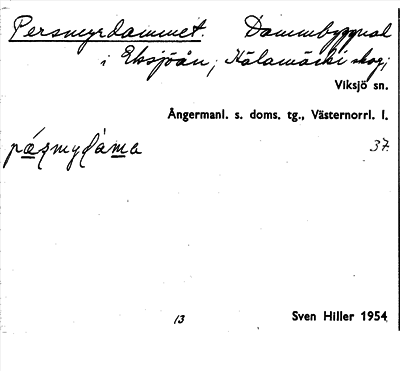 Persmyrdammet. Dammbyggnad
i Eksjöån; Kälamärki skog;
Viksjö sn.
Ångermanl. s. doms. tg., Västernorrl. l.
37.
13
Sven Hiller 1954